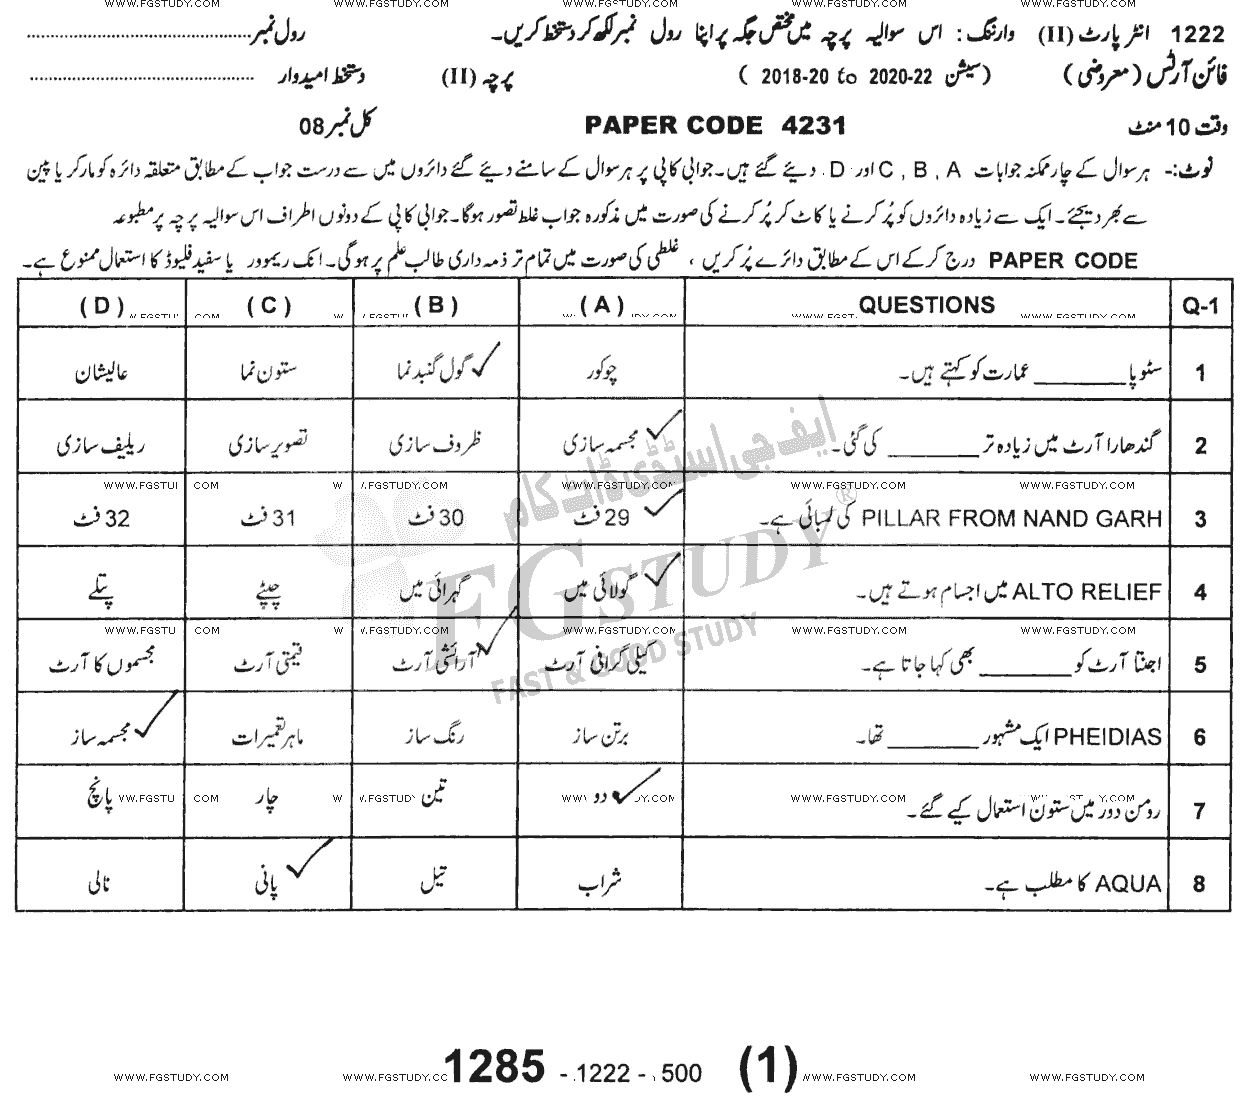 WWW.FGSTUDY.COM WWW.FGSTUDY.COM WWW.FGSTUDY.COM WWW.FGSTUDY.COM WWW.FGSTUDY.COM
1222 انٹر پارٹ (II) وارننگ: اس سوالیہ پرچہ میں مختص جگہ پر اپنا رول نمبر لکھ کر دستخط کریں۔ رول نمبر
فائن آرٹس (معروضی) (سیشن 2018-20 to 2020-22) پرچہ (II) دستخط امیدوار
وقت 10 منٹ PAPER CODE 4231 کل نمبر 08
نوٹ:- ہر سوال کے چار ممکنہ جوابات A ,B ,C اور D دیئے گئے ہیں۔ جوابی کاپی پر ہر سوال کے سامنے دیئے گئے دائروں میں سے درست جواب کے مطابق متعلقہ دائرہ کو مارکر یا پین
سے بھر دیجئے۔ ایک سے زیادہ دائروں کو پُر کرنے یا کاٹ کر پُر کرنے کی صورت میں مذکورہ جواب غلط تصور ہوگا۔ جوابی کاپی کے دونوں اطراف اس سوالیہ پرچہ پر مطبوعہ
PAPER CODE درج کر کے اس کے مطابق دائرے پُر کریں، غلطی کی صورت میں تمام تر ذمہ داری طالب علم پر ہوگی۔ انک ریموور یا سفید فلیوڈ کا استعمال ممنوع ہے۔
Q-1 QUESTIONS (A) (B) (C) (D)
1 سٹوپا ________ عمارت کو کہتے ہیں۔ چوکور گول گنبد نما ✓ ستون نما عالیشان
2 گندھارا آرٹ میں زیادہ تر ________ کی گئی۔ مجسمہ سازی ✓ ظروف سازی تصویر سازی ریلیف سازی
3 PILLAR FROM NAND GARH کی لمبائی ہے۔ 29 فٹ ✓ 30 فٹ 31 فٹ 32 فٹ
4 ALTO RELIEF میں اجسام ہوتے ہیں۔ گولائی میں ✓ گہرائی میں چپٹے پتلے
5 اجنتا آرٹ کو ________ بھی کہا جاتا ہے۔ کیلی گرافی آرٹ آرائشی آرٹ ✓ قیمتی آرٹ مجسموں کا آرٹ
6 PHEIDIAS ایک مشہور ________ تھا۔ برتن ساز رنگ ساز ماہر تعمیرات مجسمہ ساز ✓
7 رومن دور میں ستون استعمال کیے گئے۔ دو ✓ تین چار پانچ
8 AQUA کا مطلب ہے۔ شراب تیل پانی ✓ نالی
ایف جی اسٹڈی ڈاٹ کام
FG STUDY ®
FAST & GOOD STUDY
1285 - 1222 - 500 (1)
WWW.FGSTUDY.COM WWW.FGSTUDY.CC WWW.FGSTUDY.COM WWW.FGSTUDY.COM